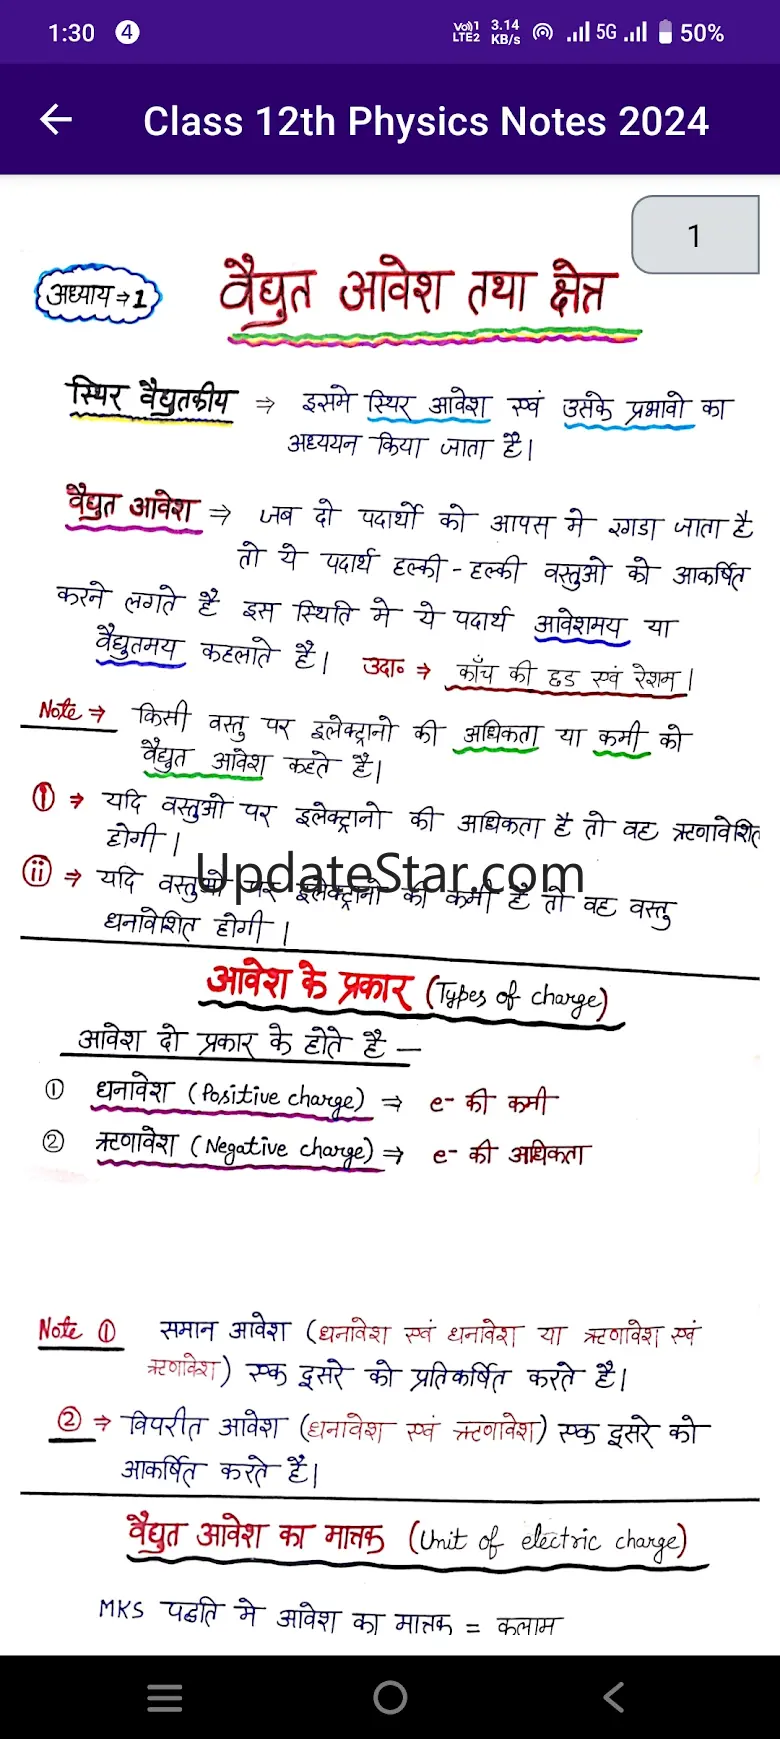 1:30 4 Vo)) 1 LTE2 3.14 KB/s 5G 50%
Class 12th Physics Notes 2024
1
अध्याय → 1 वैद्युत आवेश तथा क्षेत्र
स्थिर वैद्युतकीय ⇒ इसमे स्थिर आवेश एवं उसके प्रभावो का
अध्ययन किया जाता है।
वैद्युत आवेश ⇒ जब दो पदार्थो को आपस मे रगडा जाता है
तो ये पदार्थ हल्की - हल्की वस्तुओ को आकर्षित
करने लगते है इस स्थिति मे ये पदार्थ आवेशमय या
वैद्युतमय कहलाते है। उदा० → काँच की छड एवं रेशम।
Note → किसी वस्तु पर इलेक्ट्रानो की अधिकता या कमी को
वैद्युत आवेश कहते है।
i → यदि वस्तुओ पर इलेक्ट्रानो की अधिकता है तो वह ऋणावेशित
होगी।
UpdateStar.com
ii → यदि वस्तुओ पर इलेक्ट्रानो की कमी है तो वह वस्तु
धनावेशित होगी।
आवेश के प्रकार (Types of charge)
आवेश दो प्रकार के होते है —
① धनावेश (Positive charge) ⇒ e- की कमी
② ऋणावेश (Negative charge) ⇒ e- की अधिकता
Note ① समान आवेश (धनावेश एवं धनावेश या ऋणावेश एवं
ऋणावेश) एक दूसरे को प्रतिकर्षित करते है।
② → विपरीत आवेश (धनावेश एवं ऋणावेश) एक दूसरे को
आकर्षित करते है।
वैद्युत आवेश का मात्रक (Unit of electric charge)
MKS पद्धति मे आवेश का मात्रक = कूलाम